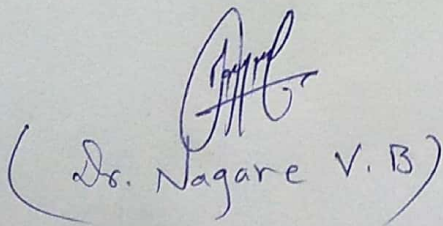 (Dr. Nagare V.B)